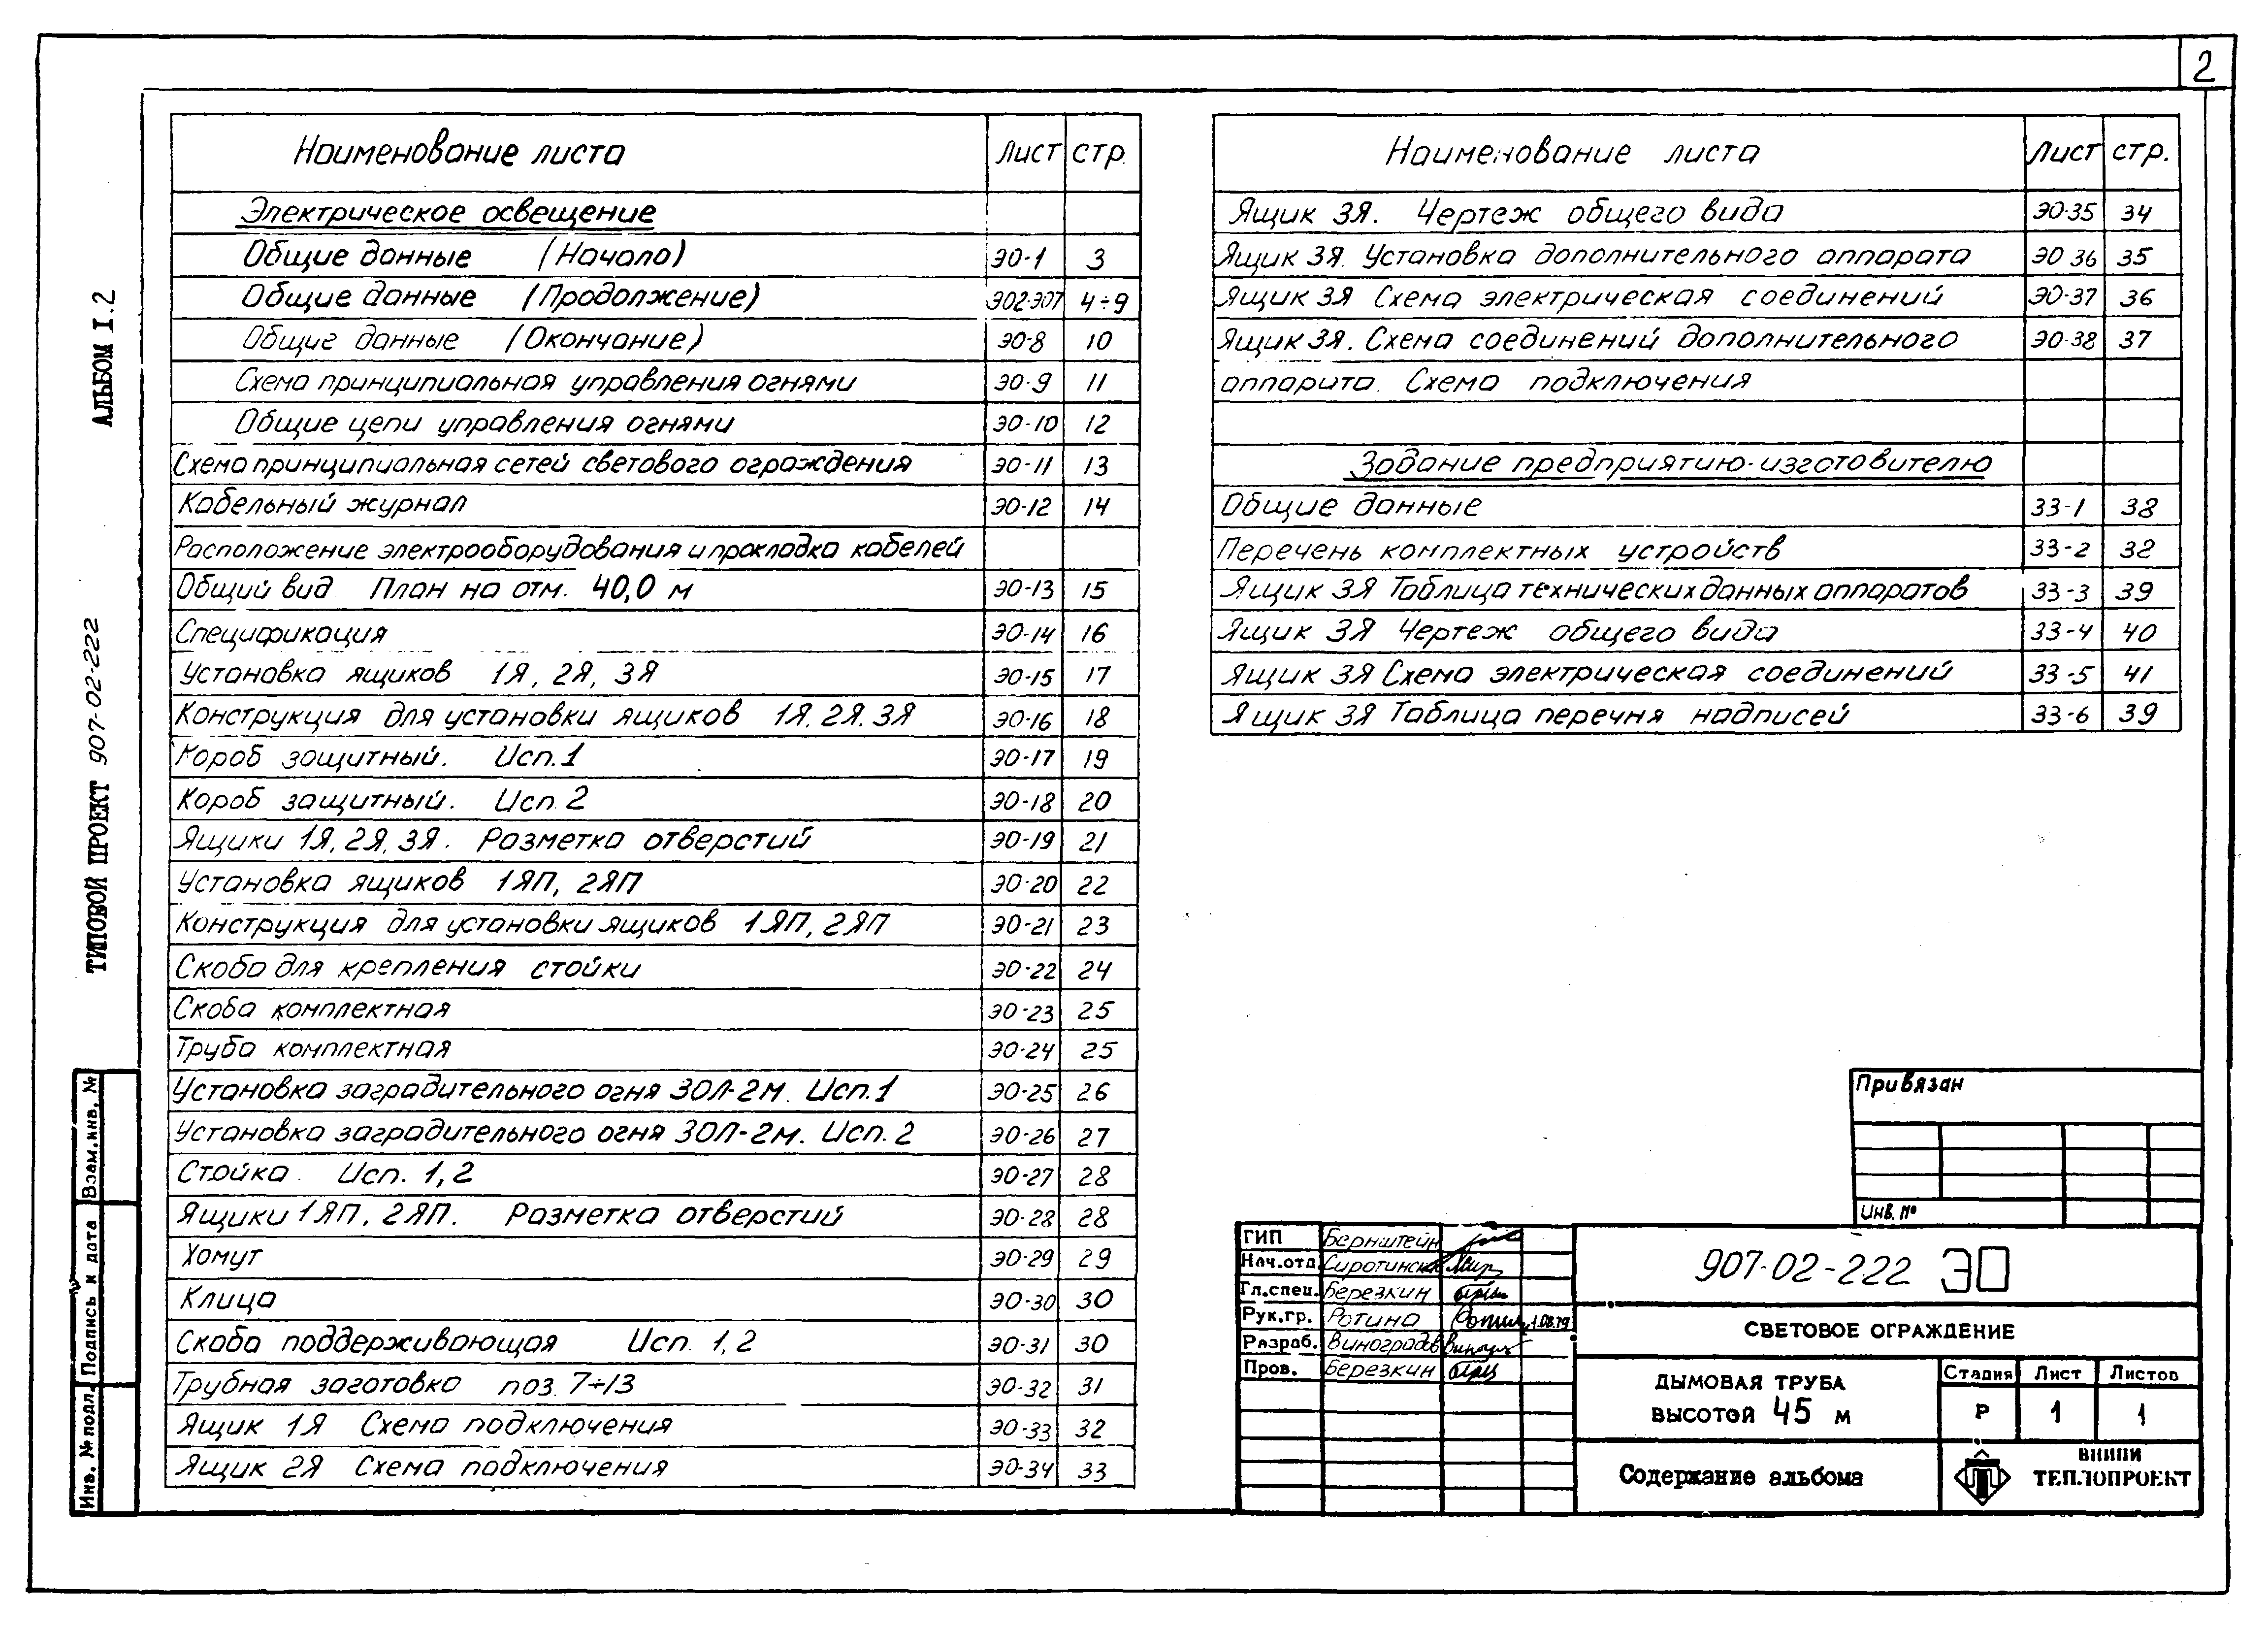 2
АЛЬБОМ I.2
ТИПОВОЙ ПРОЕКТ 907-02-222
Взам.инв. №
Подпись и дата
Инв. № подл.
Наименование листа Лист стр.
Электрическое освещение
Общие данные (Начало) ЭО-1 3
Общие данные (Продолжение) ЭО2-ЭО7 4÷9
Общие данные (Окончание) ЭО-8 10
Схема принципиальная управления огнями ЭО-9 11
Общие цепи управления огнями ЭО-10 12
Схема принципиальная сетей светового ограждения ЭО-11 13
Кабельный журнал ЭО-12 14
Расположение электрооборудования и прокладка кабелей
Общий вид. План на отм. 40,0 м ЭО-13 15
Спецификация ЭО-14 16
Установка ящиков 1Я, 2Я, 3Я ЭО-15 17
Конструкция для установки ящиков 1Я, 2Я, 3Я ЭО-16 18
Короб защитный. Исп.1 ЭО-17 19
Короб защитный. Исп. 2 ЭО-18 20
Ящики 1Я, 2Я, 3Я. Разметка отверстий ЭО-19 21
Установка ящиков 1ЯП, 2ЯП ЭО-20 22
Конструкция для установки ящиков 1ЯП, 2ЯП ЭО-21 23
Скоба для крепления стойки ЭО-22 24
Скоба комплектная ЭО-23 25
Труба комплектная ЭО-24 25
Установка заградительного огня ЗОЛ-2м. Исп.1 ЭО-25 26
Установка заградительного огня ЗОЛ-2м. Исп. 2 ЭО-26 27
Стойка. Исп. 1,2 ЭО-27 28
Ящики 1ЯП, 2ЯП. Разметка отверстий ЭО-28 28
Хомут ЭО-29 29
Клица ЭО-30 30
Скоба поддерживающая Исп. 1,2 ЭО-31 30
Трубная заготовка поз. 7÷13 ЭО-32 31
Ящик 1Я Схема подключения ЭО-33 32
Ящик 2Я Схема подключения ЭО-34 33
Наименование листа Лист стр.
Ящик 3Я. Чертеж общего вида ЭО-35 34
Ящик 3Я. Установка дополнительного аппарата ЭО 36 35
Ящик 3Я Схема электрическая соединений ЭО-37 36
Ящик 3Я. Схема соединений дополнительного ЭО-38 37
аппарата. Схема подключения
Задание предприятию-изготовителю
Общие данные ЗЗ-1 38
Перечень комплектных устройств ЗЗ-2 32
Ящик 3Я Таблица технических данных аппаратов ЗЗ-3 39
Ящик 3Я Чертеж общего вида ЗЗ-4 40
Ящик 3Я Схема электрическая соединений ЗЗ-5 41
Ящик 3Я Таблица перечня надписей ЗЗ-6 39
Привязан
Инв. №
ГИП Бернштейн
Нач.отд.
Гл.спец. Березкин
Рук.гр. Ротина
Разраб. Виноградов
Пров. Березкин
907-02-222 ЭО
СВЕТОВОЕ ОГРАЖДЕНИЕ
ДЫМОВАЯ ТРУБА
ВЫСОТОЙ 45 М
Стадия Лист Листов
Р 1 1
Содержание альбома
ВНИПИ
ТЕПЛОПРОЕКТ